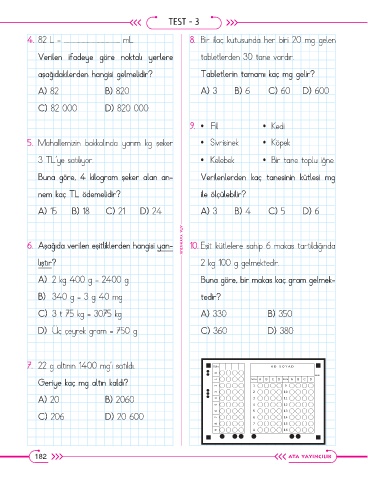 TEST - 3
4. 82 L = ........................ mL
Verilen ifadeye göre noktalı yerlere
aşağıdakilerden hangisi gelmelidir?
A) 82 B) 820
C) 82 000 D) 820 000
5. Mahallemizin bakkalında yarım kg şeker
3 TL'ye satılıyor.
Buna göre, 4 kilogram şeker alan an-
nem kaç TL ödemelidir?
A) 15 B) 18 C) 21 D) 24
6. Aşağıda verilen eşitliklerden hangisi yan-
lıştır?
A) 2 kg 400 g = 2400 g
B) 340 g = 3 g 40 mg
C) 3 t 75 kg = 3075 kg
D) Üç çeyrek gram = 750 g
7. 22 g altının 1400 mg'ı satıldı.
Geriye kaç mg altın kaldı?
A) 20 B) 2060
C) 206 D) 20 600
8. Bir ilaç kutusunda her biri 20 mg gelen
tabletlerden 30 tane vardır.
Tabletlerin tamamı kaç mg gelir?
A) 3 B) 6 C) 60 D) 600
9. • Fil • Kedi
• Sivrisinek • Köpek
• Kelebek • Bir tane toplu iğne
Verilenlerden kaç tanesinin kütlesi mg
ile ölçülebilir?
A) 3 B) 4 C) 5 D) 6
10. Eşit kütlelere sahip 6 makas tartıldığında
2 kg 100 g gelmektedir.
Buna göre, bir makas kaç gram gelmek-
tedir?
A) 330 B) 350
C) 360 D) 380
182
ATA YAYINCILIK